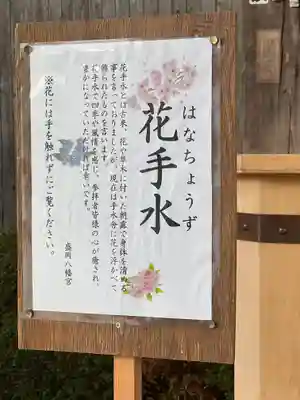 はなちょうず
花手水
花手水とは古来、花や草木に付いた朝露で身体を清める
事を言っておりましたが、現在は手水舎に花を浮かべて、
飾られたものを言います。
花手水で四季や風情を感じ、参拝者皆様の心が癒され、
豊かになっていただければ幸いです。
※花には手を触れずにご覧ください。
盛岡八幡宮